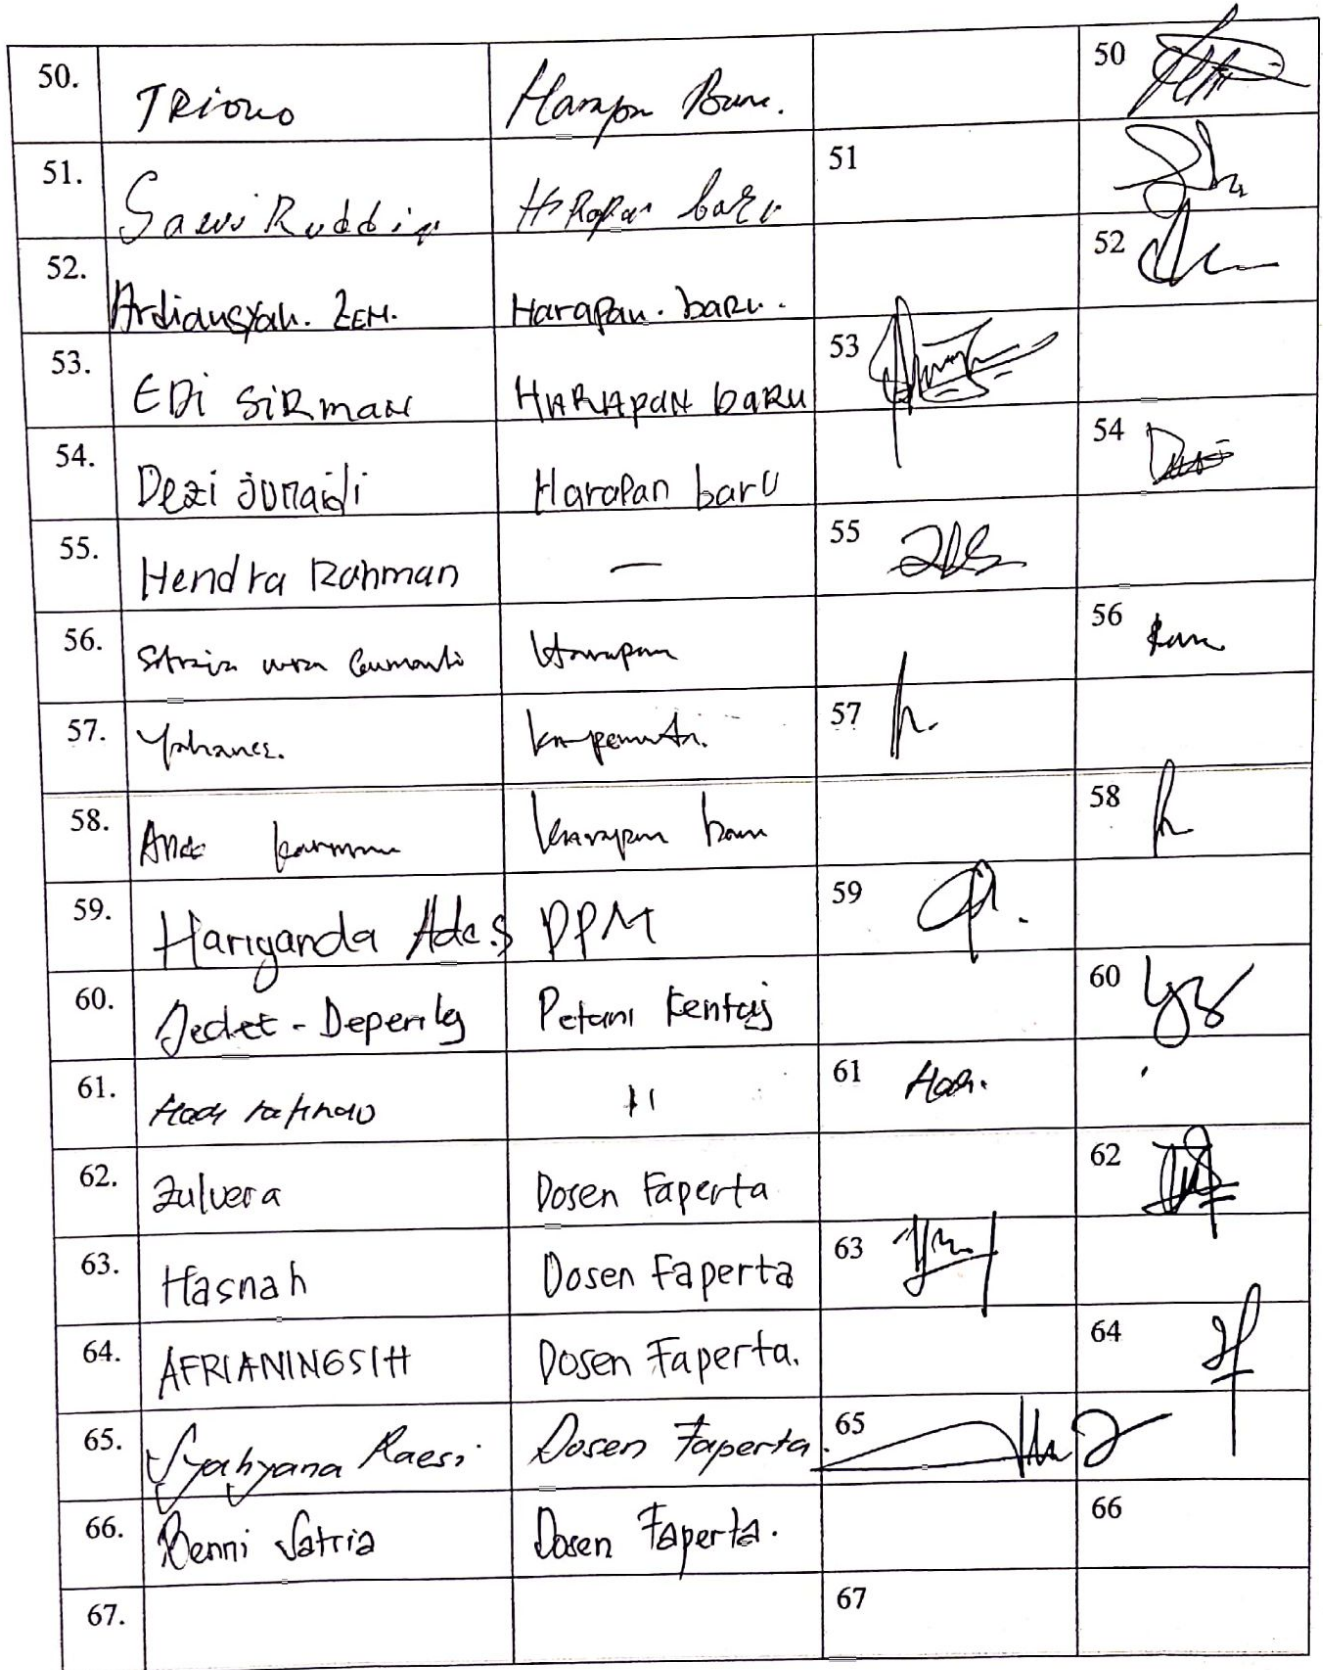 50. TRiono Harapan Baru. 50
51. SawiRuddin HaRapan baru 51
52. Ardiansyah. ZEM. Harapan. baru. 52
53. EDi SiRman HARApan baRu 53
54. Dezi junaidi Harapan baru 54
55. Hendra Rahman — 55
56. Harapan 56
57. Yohanes. 57
58. Harapan baru 58
59. Hariganda Ade.S PPM 59
60. Petani 60
61. Hadi 11 61 Hadi.
62. Zulvera Dosen Faperta 62
63. Hasnah Dosen Faperta 63
64. AFRIANINGSIH Dosen Faperta. 64
65. Syahyana Raesi Dosen Faperta. 65
66. Benni Satria Dosen Faperta. 66
67. 67